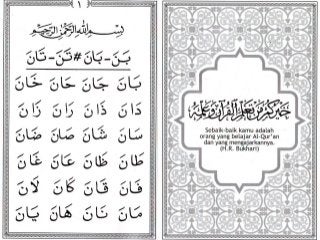 ١
بِسْمِ اللهِ الرَّحْمٰنِ الرَّحِيْمِ
بَنَ - بَانَ # تَنَ - تَانَ
بَانَ جَانَ حَانَ خَانَ
دَانَ ذَانَ رَانَ زَانَ
سَانَ شَانَ صَانَ ضَانَ
طَانَ ظَانَ عَانَ غَانَ
فَانَ قَانَ كَانَ لَانَ
مَانَ نَانَ هَانَ يَانَ
خَيْرُكُمْ مَنْ تَعَلَّمَ الْقُرْآنَ وَعَلَّمَهُ
Sebaik-baik kamu adalah
orang yang belajar Al-Qur'an
dan yang mengajarkannya.
(H.R. Bukhari)